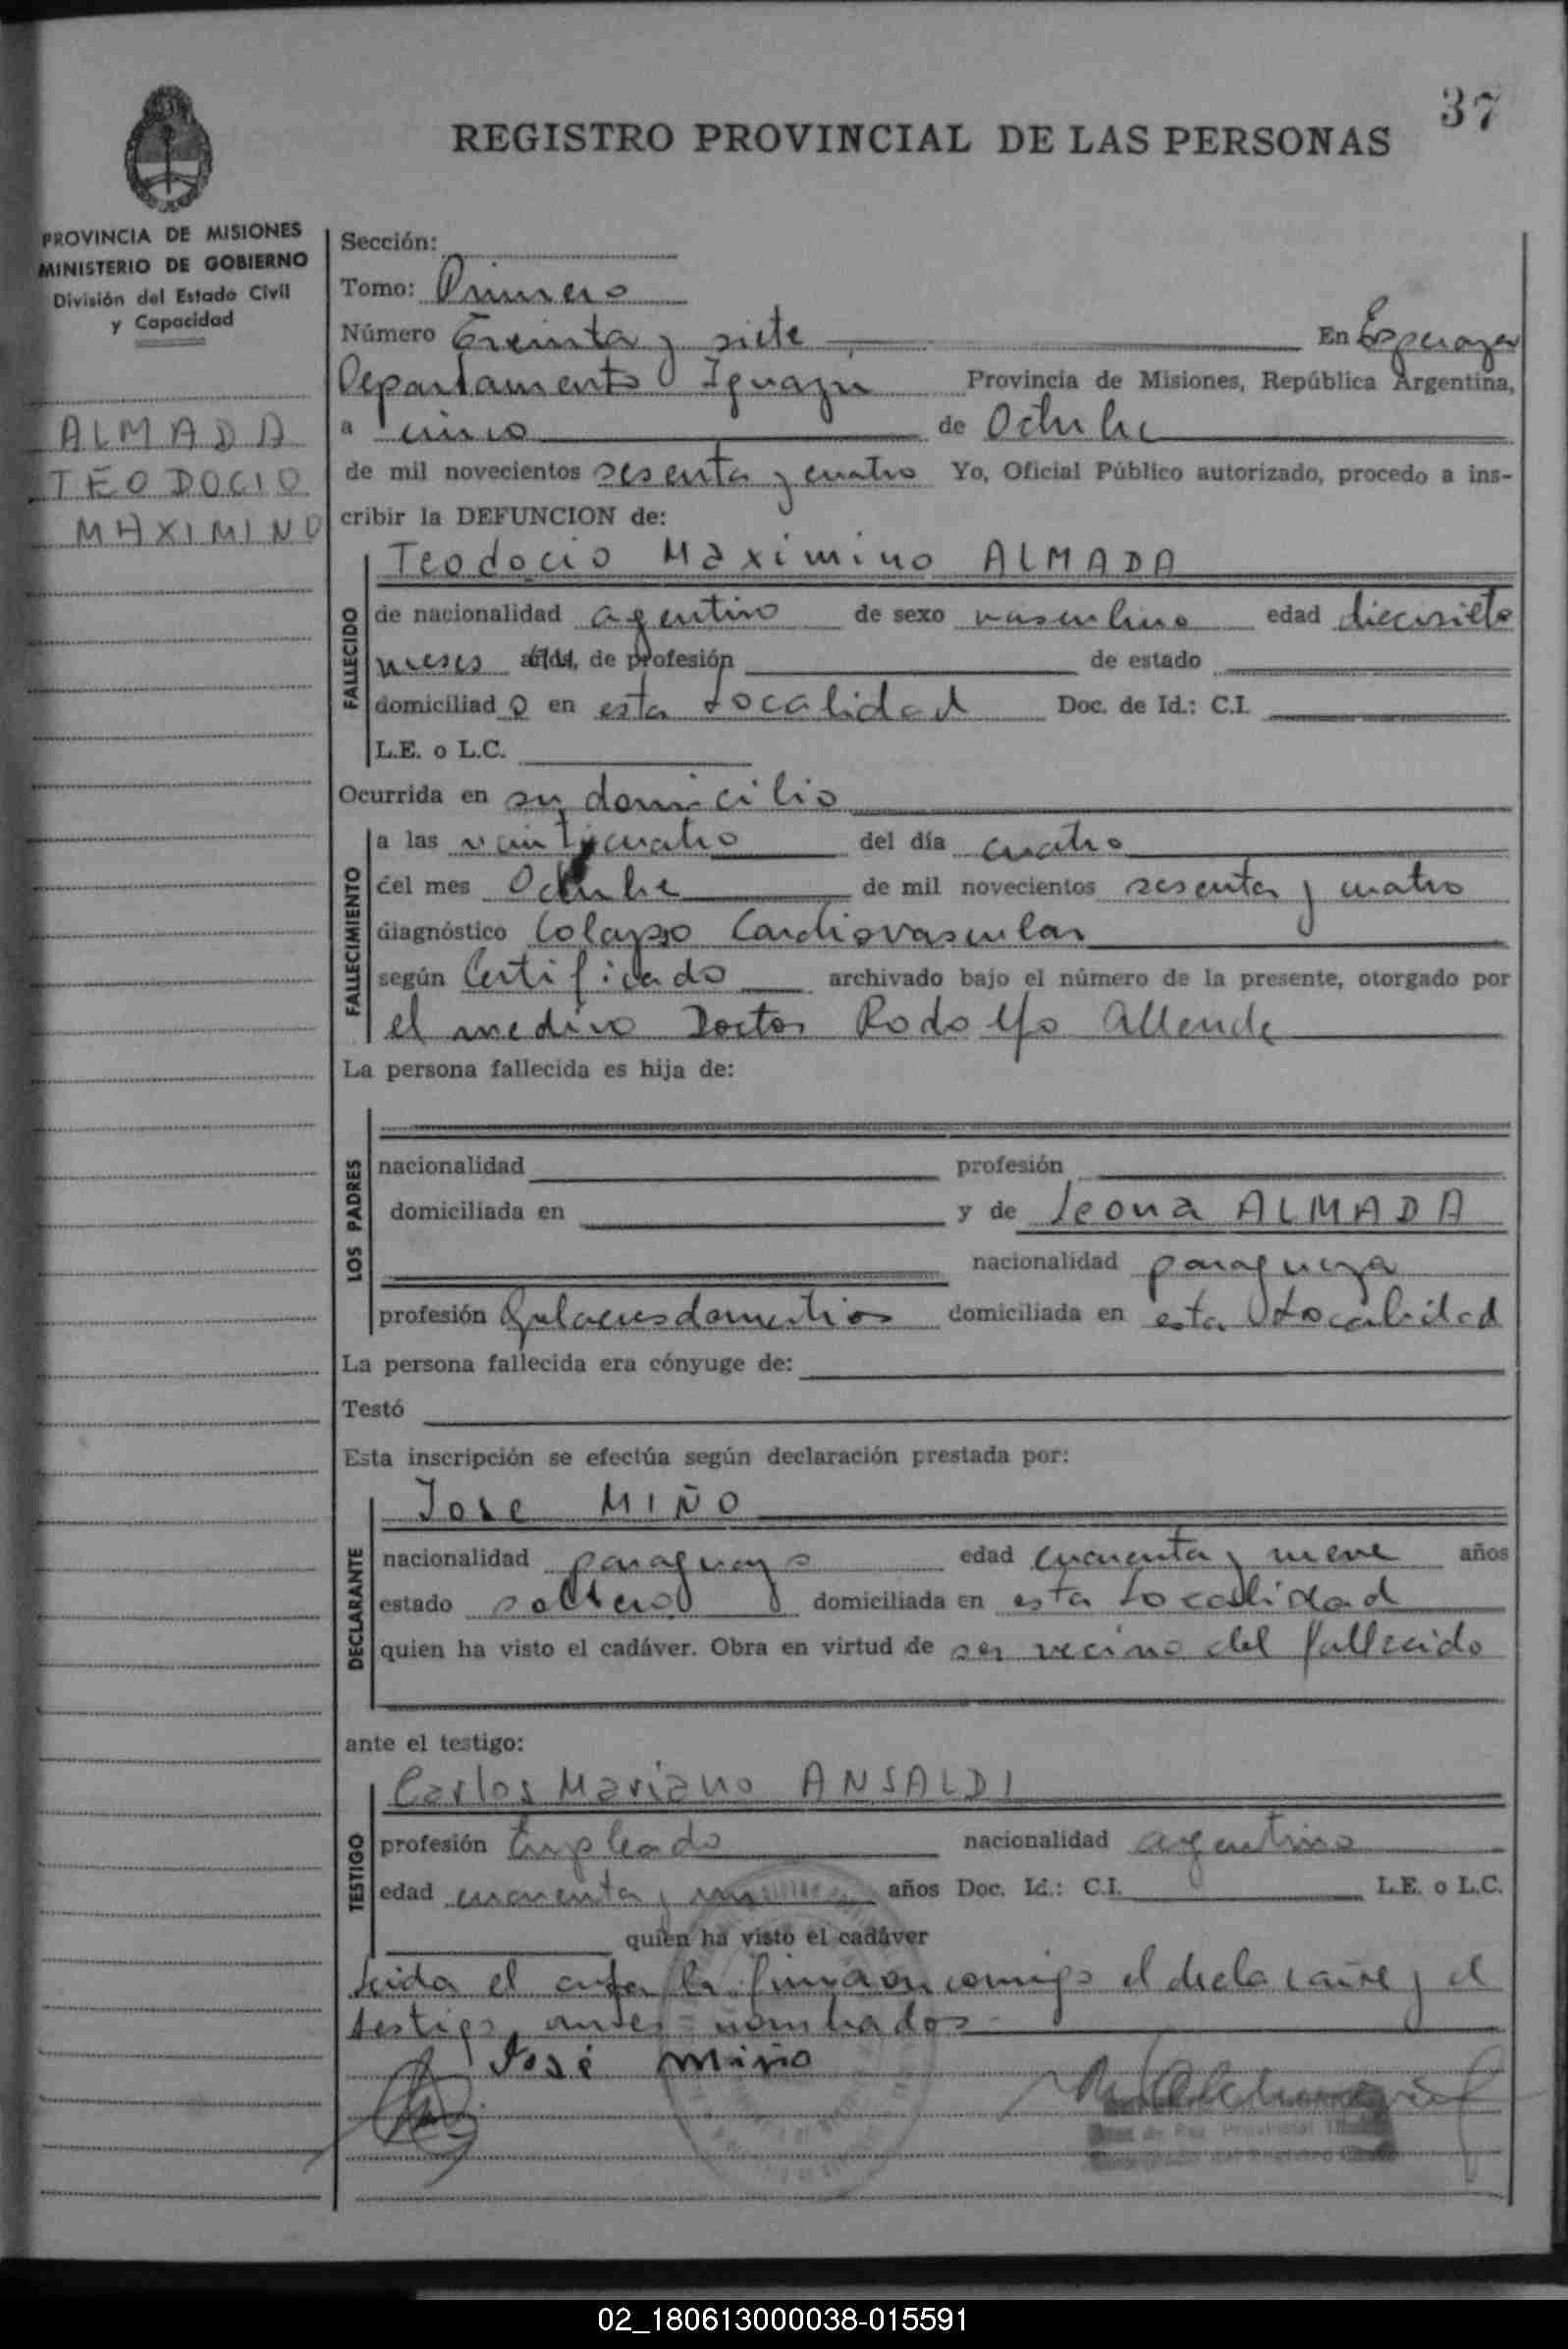 37
REGISTRO PROVINCIAL DE LAS PERSONAS
PROVINCIA DE MISIONES
MINISTERIO DE GOBIERNO
División del Estado Civil
y Capacidad
ALMADA
TEODOCIO
MAXIMINO
Sección:
Tomo: Primero
Número Treinta y siete En Esperanza
Departamento Iguazú Provincia de Misiones, República Argentina,
a cinco de Octubre
de mil novecientos sesenta y cuatro Yo, Oficial Público autorizado, procedo a ins-
cribir la DEFUNCION de:
FALLECIDO
Teodocio Maximino ALMADA
de nacionalidad argentino de sexo masculino edad diecisiete
meses años, de profesión de estado
domiciliad o en esta Localidad Doc. de Id.: C.I.
L.E. o L.C.
Ocurrida en su domicilio
FALLECIMIENTO
a las veinticuatro del día cuatro
del mes Octubre de mil novecientos sesenta y cuatro
diagnóstico Colapso Cardiovascular
según Certificado archivado bajo el número de la presente, otorgado por
el medico Doctor Rodolfo Allende
La persona fallecida es hija de:
LOS PADRES
nacionalidad profesión
domiciliada en y de Leona ALMADA
nacionalidad paraguaya
profesión Quehaceres domesticos domiciliada en esta Localidad
La persona fallecida era cónyuge de:
Testó
Esta inscripción se efectúa según declaración prestada por:
DECLARANTE
Jose MIÑO
nacionalidad paraguayo edad cuarenta y nueve años
estado soltero domiciliada en esta Localidad
quien ha visto el cadáver. Obra en virtud de ser vecino del fallecido
ante el testigo:
TESTIGO
Carlos Mariano ANSALDI
profesión Empleado nacionalidad argentino
edad cuarenta y un años Doc. Id.: C.I. L.E. o L.C.
quien ha visto el cadáver
Leida el acta la firman conmigo el declarante y el
testigo antes = nombrados
José Miño
Juez de Paz Provincial
02_180613000038-015591